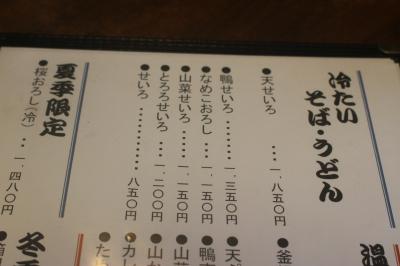 冷たい
そば・うどん
●天せいろ ‥‥ 一、八五〇円
●鴨せいろ ‥‥‥‥ 一、三五〇円
●なめこおろし ‥‥ 一、一五〇円
●山菜せいろ ‥‥‥ 一、一五〇円
●とろろせいろ ‥‥ 一、二〇〇円
●せいろ ‥‥‥‥‥‥ 八五〇円
夏季限定
●桜おろし（冷） ‥‥ 一、四八〇円
温
●釜
●天
●鴨
●山菜
●山か
●カレ
●た
冬季